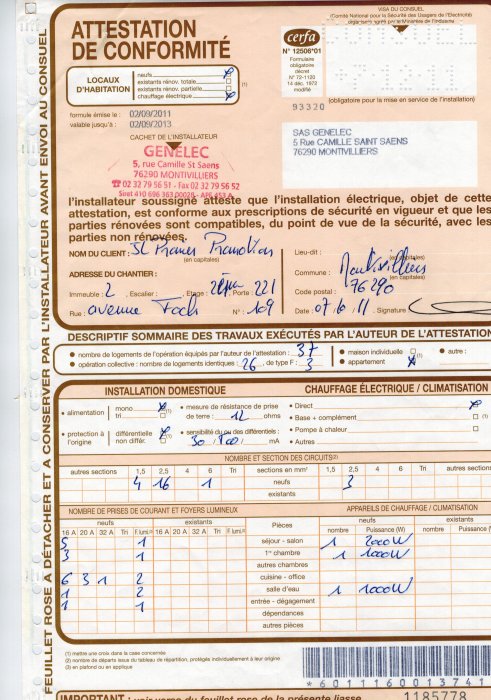 FEUILLET ROSE A DÉTACHER ET A CONSERVER PAR L'INSTALLATEUR AVANT ENVOI AU CONSUEL
ATTESTATION
DE CONFORMITÉ
LOCAUX
D'HABITATION
neufs
existants rénov. totale
existants rénov. partielle
chauffage électrique
(1)
cerfa
N° 12506*01
Formulaire
obligatoire
décret
N° 72-1120
14 déc. 1972
modifié
VISA DU CONSUEL
(Comité National pour la Sécurité des Usagers de l'Électricité)
organisme agréé par le Ministère de l'Industrie
93320
(obligatoire pour la mise en service de l'installation)
formule émise le : 02/09/2011
valable jusqu'à : 02/09/2013
CACHET DE L'INSTALLATEUR
GENELEC
5, rue Camille St Saens
76290 MONTIVILLIERS
☎ 02 32 79 56 51 - Fax 02 32 79 56 52
Siret 410 696 363 00028 - APE 453 A
SAS GENELEC
5 Rue CAMILLE SAINT SAENS
76290 MONTIVILLIERS
l'installateur soussigné atteste que l'installation électrique, objet de cette
attestation, est conforme aux prescriptions de sécurité en vigueur et que les
parties rénovées sont compatibles, du point de vue de la sécurité, avec les
parties non rénovées.
NOM DU CLIENT : SC Promotion
(en capitales)
ADRESSE DU CHANTIER :
Immeuble : 2 , Escalier : , Etage : 2 , Porte : 221
Rue : avenue Foch N° : 109
(en capitales)
Lieu-dit :
(en capitales)
Commune : Montivilliers
(en capitales)
Code postal : 76290
Date : 07.6.11 , Signature
DESCRIPTIF SOMMAIRE DES TRAVAUX EXÉCUTÉS PAR L'AUTEUR DE L'ATTESTATION
• nombre de logements de l'opération équipés par l'auteur de l'attestation : 37
• opération collective : nombre de logements identiques : 26 , de type F : 3
• maison individuelle
• appartement X
• autre :
INSTALLATION DOMESTIQUE
• alimentation mono X
tri (1)
• protection à l'origine
différentielle X
non différ. (1)
• mesure de résistance de prise
de terre : 12 ohms
• sensibilité du ou des différentiels :
30 / 500 / mA
CHAUFFAGE ÉLECTRIQUE / CLIMATISATION
• Direct X
• Base + complément (1)
• Pompe à chaleur
• Autres
NOMBRE ET SECTION DES CIRCUITS(2)
autres sections 1,5 2,5 4 6 Tri sections en mm² 1,5 2,5 4 6 Tri autres sections
4 16 1 neufs 3
existants
NOMBRE DE PRISES DE COURANT ET FOYERS LUMINEUX
APPAREILS DE CHAUFFAGE / CLIMATISATION
neufs existants Pièces neufs existants
16 A 20 A 32 A Tri F. lumi.(3) 16 A 20 A 32 A Tri F. lumi.(3) nombre Puissance (W) nombre Puissance (
5 1 séjour - salon 1 2000W
3 1 1er chambre 1 1000W
autres chambres
6 3 1 2 cuisine - office
1 2 salle d'eau 1 1000W
1 1 entrée - dégagement
dépendances
autres pièces
(1) mettre une croix dans la case concernée
(2) nombre de départs issus du tableau de répartition, protégés individuellement à leur origine
(3) en plafond ou en applique
*6011160013741
1185778
IMPORTANT : voir verso du feuillet rose de la présente liasse